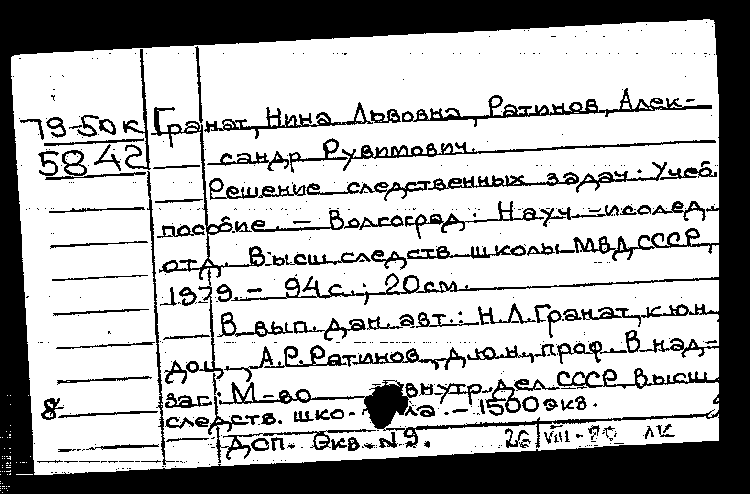 79-50к Гранат, Нина Львовна, Ратинов, Алек-
5842 сандр Рувимович.
Решение следственных задач: Учеб.
пособие. - Волгоград: Науч.-исслед.
отд. Высш. следств. школы МВД СССР,
1979. - 94 с.; 20 см.
В вып. дан. авт.: Н.Л. Гранат, к.ю.н.,
доц., А.Р. Ратинов, д.ю.н., проф. В над-
заг: М-во внутр. дел СССР. Высш.
8 следств. шко- ла. - 1500 экз.
Доп. Экз. N9. 26/VIII-80 ЛК